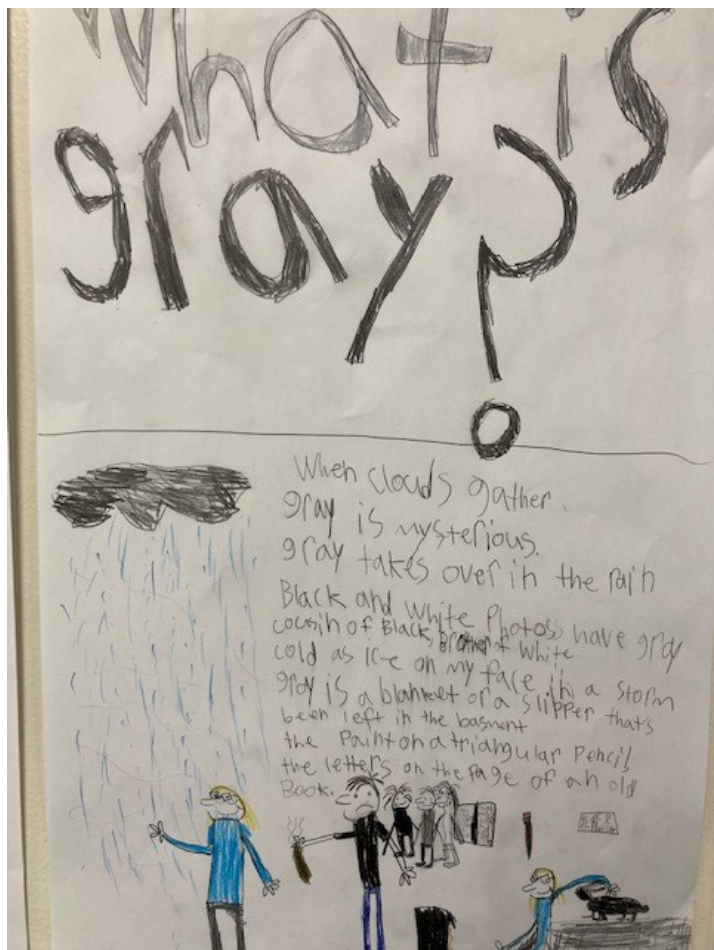 What is
gray?
When clouds gather.
gray is mysterious.
gray takes over in the rain
Black and White Photos have gray
cousin of Black, Brother of White
cold as Ice on my face in a storm
gray is a blanket or a slipper that's
been left in the basment
the Paint on a triangular Pencil,
the letters on the Page of an old
Book.